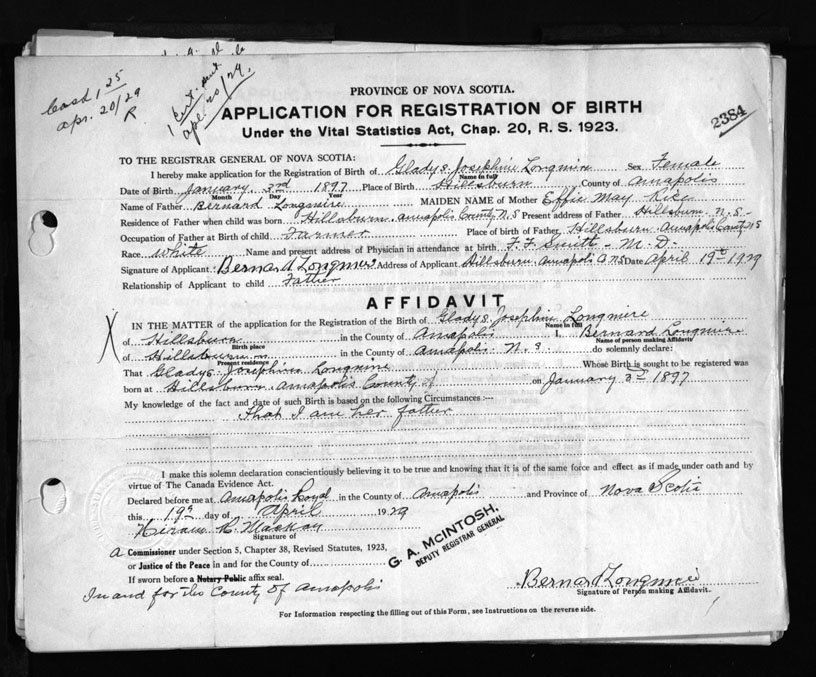 Cash 1 25
Apr. 20/29
R
1 Cert. sent
apl. 20/29.
2384
PROVINCE OF NOVA SCOTIA.
APPLICATION FOR REGISTRATION OF BIRTH
Under the Vital Statistics Act, Chap. 20, R. S. 1923.
TO THE REGISTRAR GENERAL OF NOVA SCOTIA:
I hereby make application for the Registration of Birth of Gladys Josephine Longmire Sex Female
Name in full
Date of Birth January 3rd 1897 Place of Birth Hillsburn County of Annapolis
Month Day Year
Name of Father Bernard Longmire MAIDEN NAME of Mother Effie May
Residence of Father when child was born Hillsburn Annapolis County N S Present address of Father Hillsburn N. S-
Occupation of Father at Birth of child Farmer Place of birth of Father, Hillsburn Annapolis County N S
Race White Name and present address of Physician in attendance at birth F. F. Smith - M. D.
Signature of Applicant Bernard Longmire Address of Applicant Hillsburn Annapolis Co N S Date April 19th 1929
Relationship of Applicant to child Father
AFFIDAVIT
IN THE MATTER of the application for the Registration of the Birth of Gladys Josephine Longmire
Name in full
of Hillsburn in the County of Annapolis I, Bernard Longmire
Birth place Name of person making Affidavit
of Hillsburn in the County of Annapolis N. S do solemnly declare:
Present residence
That Gladys Josephine Longmire Whose Birth is sought to be registered was
born at Hillsburn Annapolis County on January 3rd 1897
My knowledge of the fact and date of such Birth is based on the following Circumstances:—
That I am her father
I make this solemn declaration conscientiously believing it to be true and knowing that it is of the same force and effect as if made under oath and by
virtue of The Canada Evidence Act.
Declared before me at Annapolis Royal in the County of Annapolis and Province of Nova Scotia
this 19th day of April 1929
Hiram H. MacKay
Signature of
G. A. McINTOSH,
DEPUTY REGISTRAR GENERAL
A Commissioner under Section 5, Chapter 38, Revised Statutes, 1923,
or Justice of the Peace in and for the County of
If sworn before a Notary Public affix seal.
In and for the County of Annapolis
Bernard Longmire
Signature of Person making Affidavit.
For Information respecting the filling out of this Form, see Instructions on the reverse side.